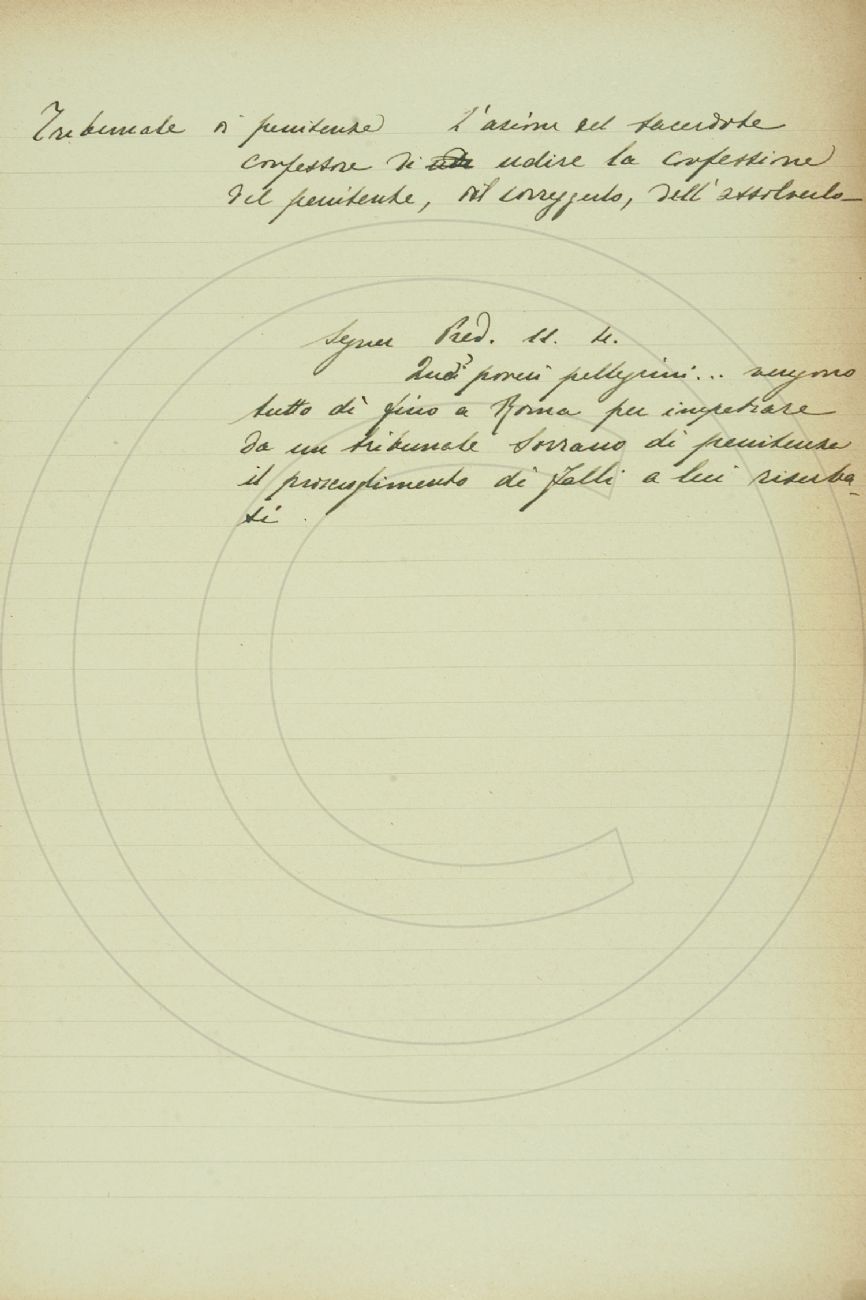 Tribunale di penitenza L'azione del sacerdote
confessore di udire la confessione
del penitente, del correggerlo, dell'assolverlo
Segner Pred. 11. 4.
Quei poveri pellegrini... vengono
tutto dì fino a Roma per impetrare
da un tribunale sovrano di penitenza
il proscioglimento di falli a lui riserba-
ti